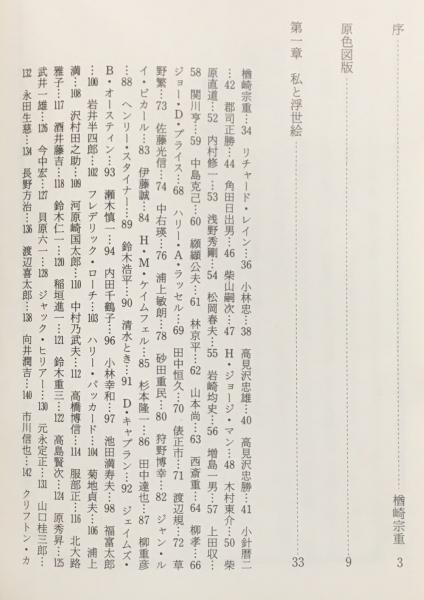 序……………………………… 楢崎宗重 3
原色図版……………………………… 9
第一章　私と浮世絵……………………………… 33
楢崎宗重…34　リチャード・レイン…36　小林忠…38　高見沢忠雄…40　高見沢忠勝…41　小針暦二
…42　郡司正勝…44　角田日出男…46　柴山嗣次…47　H・ジョージ・マン…48　木村東介…50　柴
原直道…52　内村修一…53　浅野秀剛…54　松岡春夫…55　岩崎均史…56　増島一男…57　上田収…
58　関川亨…59　中島克己…60　纐纈公夫…61　林京平…62　山本尚…63　西斎重…64　柳孝…66
ジョー・D・プライス…68　ハリー・A・ラッセル…69　田中恒久…70　俵正市…71　渡辺規…72　草
野繁…73　佐藤光信…74　中右瑛…76　浦上敏朗…78　砂田重民…80　狩野博幸…82　ジャン・ル
イ・ピカール…83　伊藤誠…84　H・M・ケイムフェル…85　杉本隆一…86　田中達也…87　柳重彦
…88　ヘンリー・スタイナー…89　鈴木浩平…90　清水とき…91　D・キャプラン…92　ジェイムズ・
B・オースティン…93　瀬木慎一…94　内田千鶴子…96　小林幸和…97　池田満寿夫…98　福富太郎
…100　岩井半四郎…102　フレデリック・ローチ…103　ハリー・パッカード…104　菊地貞夫…106　浦上
満…108　沢村田之助…109　河原崎国太郎…110　中村乃武夫…112　高橋博信…114　服部正…116　北大路
雅子…117　酒井藤吉…118　鈴木仁一…120　稲垣進一…121　鈴木重三…122　高島賢次…124　原秀昇…125
武井一雄…126　今中宏…127　貝原六一…128　ジャック・ヒリアー…130　元永定正…131　山口桂三郎…
132　永田生慈…134　長野方治…136　渡辺喜太郎…138　向井潤吉…140　市川信也…142　クリフトン・カ